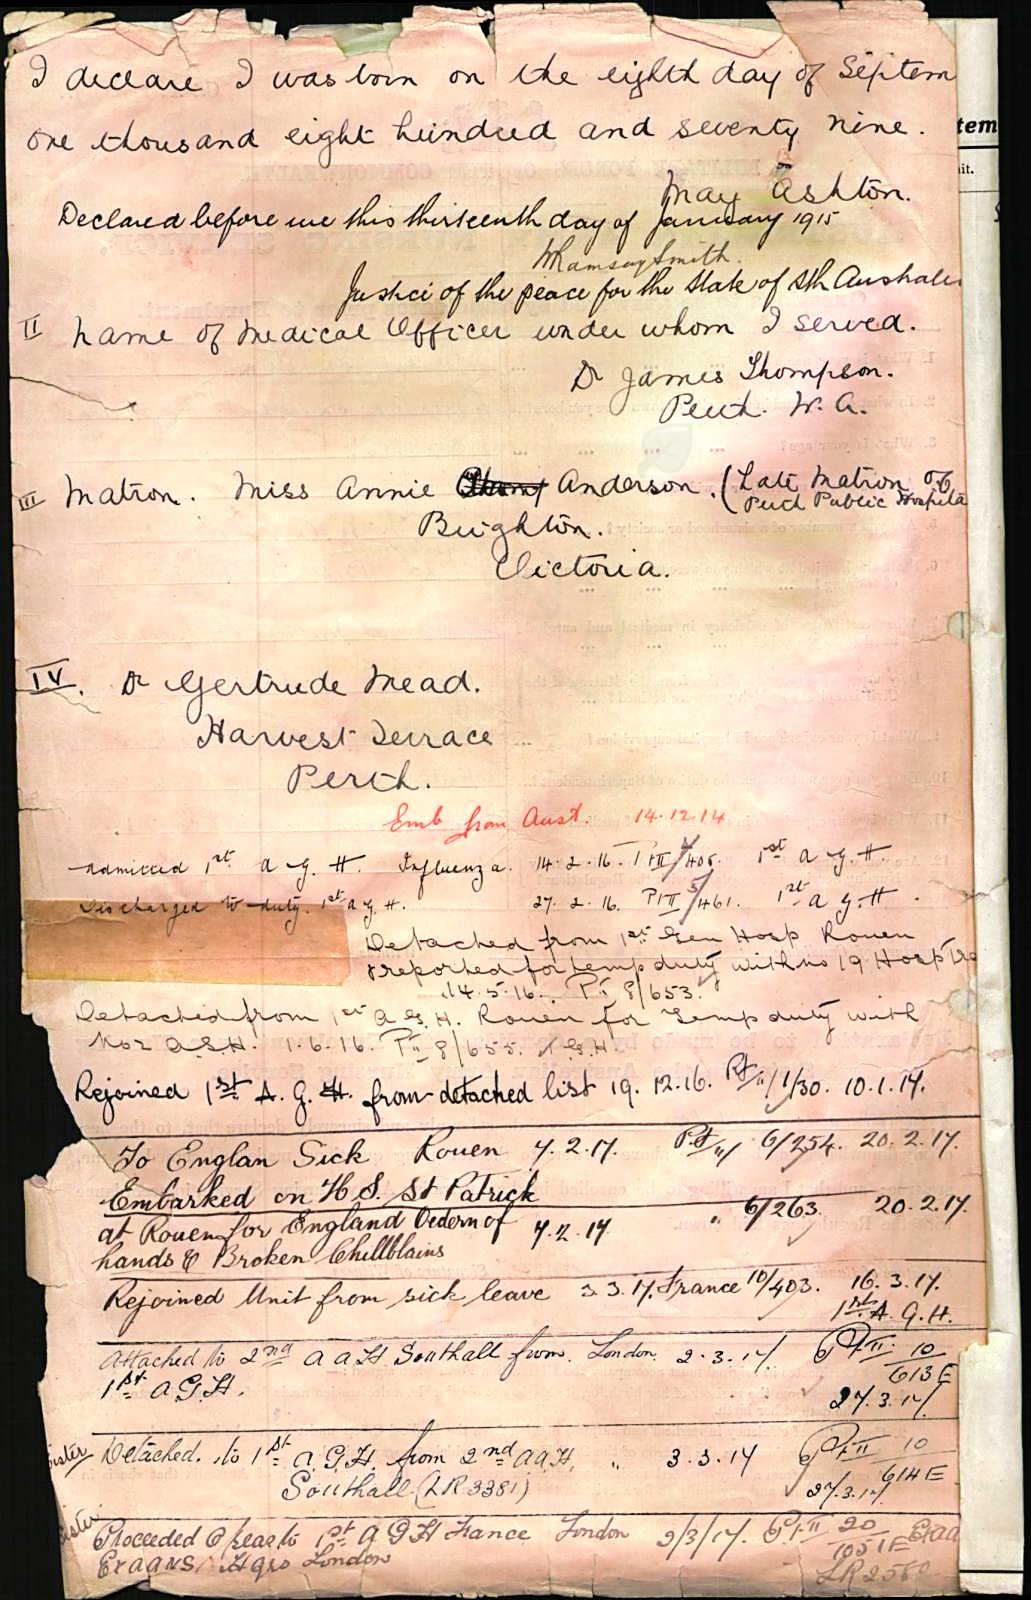 I declare I was born on the eighth day of Septem
one thousand eight hundred and seventy nine.
May Ashton.
Declared before me this thirteenth day of January 1915
WRamsaySmith.
Justice of the peace for the State of Sth Australia
II Name of Medical Officer under whom I served.
Dr James Thompson.
Perth. W. A.
III Matron. Miss Annie Anderson. (Late Matron of
Perth Public Hospita
Brighton.
Victoria.
IV. Dr Gertrude Mead.
Harvest Terrace
Perth.
Emb from Aust. 14.12.14
Admitted 1st A G. H. Influenza. 14.2.16. Pt II 4/405. 1st A G. H.
Discharged to duty. 1st A G. H. 27.2.16. Pt II 5/461. 1st A G. H.
Detached from 1st Gen Hosp Rouen
& reported for temp duty with No 19 Hosp
14.5.16. Pt II 8/653.
Detached from 1st A G. H. Rouen for Temp duty with
No 2 A.S.H. 1.6.16. Pt II 8/655.
Rejoined 1st A. G. H. from detached list 19.12.16. Pt II 1/30. 10.1.17.
To Englan Sick Rouen 7.2.17. Pt II 6/254. 20.2.17.
Embarked on H S. St Patrick
at Rouen for England Oedem of 7.2.17 " 6/263. 20.2.17.
hands & Broken Chillblains
Rejoined Unit from sick leave 3.3.17. France 10/403. 16.3.17.
1st A. G. H.
Attached to 2nd A A H Southall from London. 2.3.17. Pt II 10
1st A.G.H. 613E
27.3.17
Sister Detached. to 1st A.G.H. from 2nd A A H. " 3.3.17 Pt II 10
Southall (LR 3381) 614E
27.3.17.
Sister
Proceeded O'seas to 1st A G H France London 2/3/17. Pt II 20
Ex AANS. Hqrs London 1051E
LR 2580
tem
it.